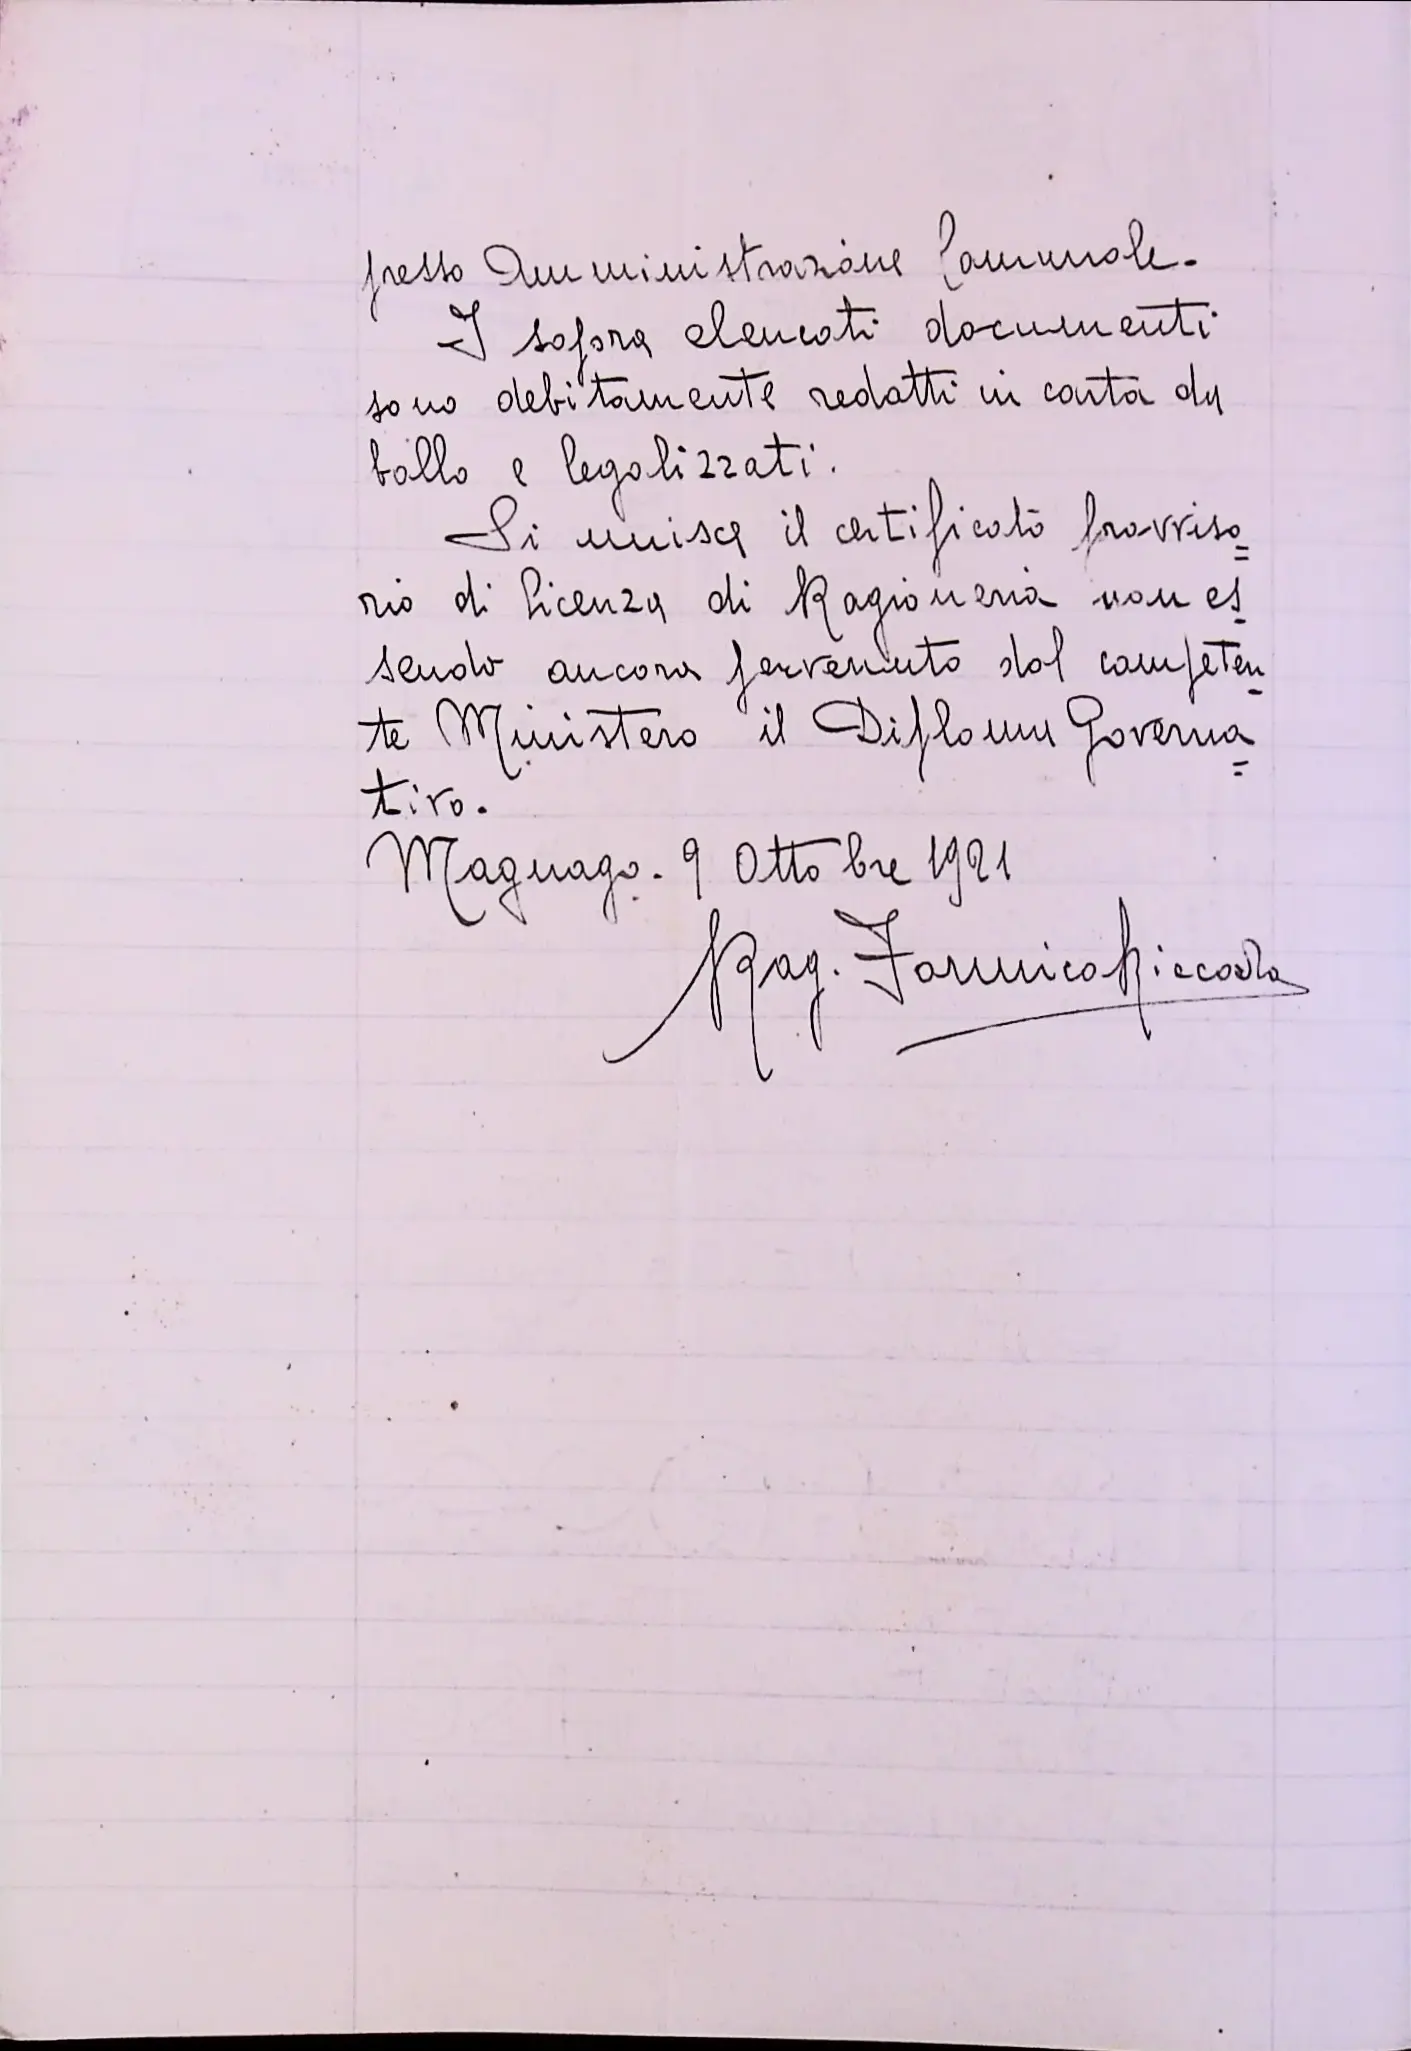 presso Amministrazione Comunale.
I sopra elencati documenti
sono debitamente redatti in carta da
bollo e legalizzati.
Si unisce il certificato provviso=
rio di Licenza di Ragioneria non es-
sendo ancora pervenuto dal competen-
te Ministero il Diploma Governa=
tivo.
Magnago. 9 Ottobre 1921
Rag. Formico Riccardo